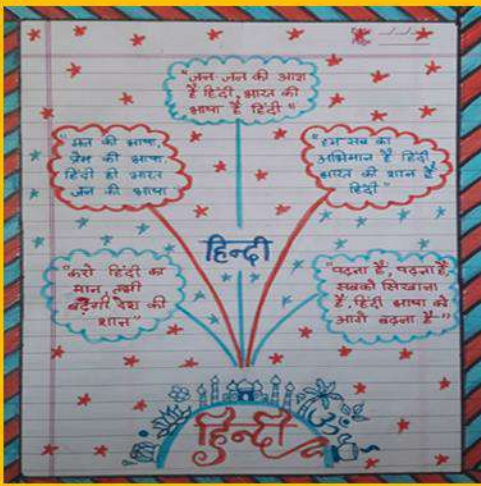 "जन-जन की आशा
है हिंदी, भारत की
भाषा है हिंदी"
"मन की भाषा,
प्रेम की भाषा,
हिंदी है भारत
जन की भाषा"
"हम सब का
अभिमान है हिंदी
भारत की शान है
हिंदी"
हिन्दी
"करो हिंदी का
मान, तभी
बढ़ेगी देश की
शान"
"पढ़ना है, पढ़ाना है,
सबको सिखाना
है, हिंदी भाषा को
आगे बढ़ाना है"
हिन्दी